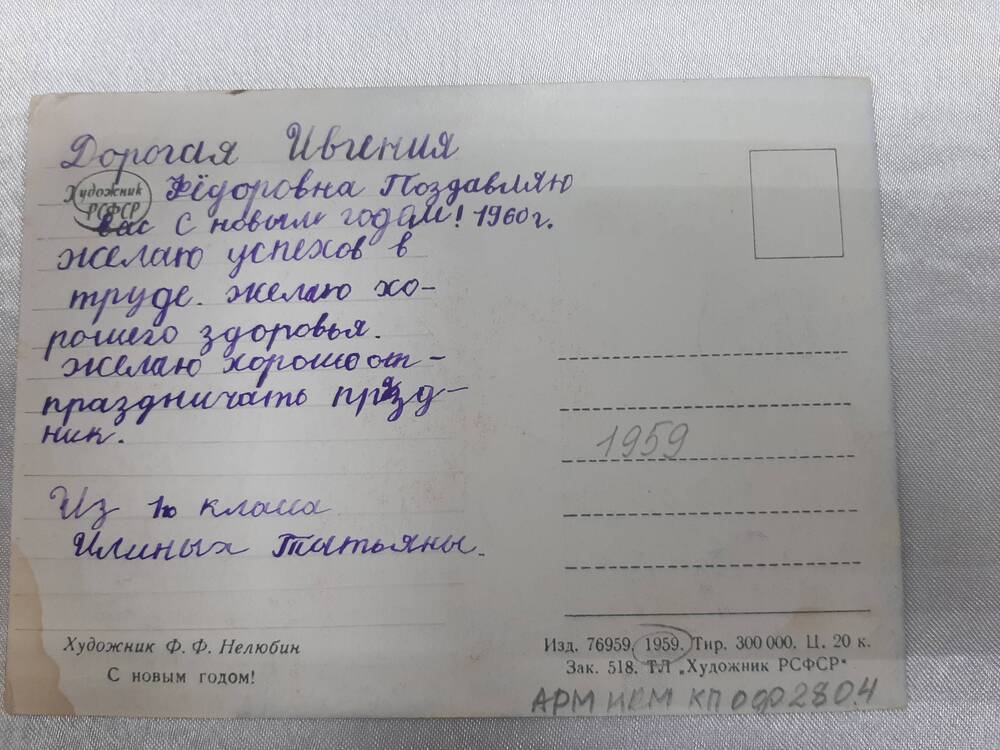 Дорогая Ивгения
Художник
РСФСР
Фёдоровна Поздавляю
вас с новым годом! 1960 г.
желаю успехов в
труде. желаю хо-
рошего здоровья.
желаю хорошо от-
праздничать празд-
ник.
1959
Из 1го класса
Илиных Татьяны.
Художник Ф. Ф. Нелюбин
С новым годом!
Изд. 76959. 1959. Тир. 300 000. Ц. 20 к.
Зак. 518. ТЛ „Художник РСФСР"
АРМ КП 2804